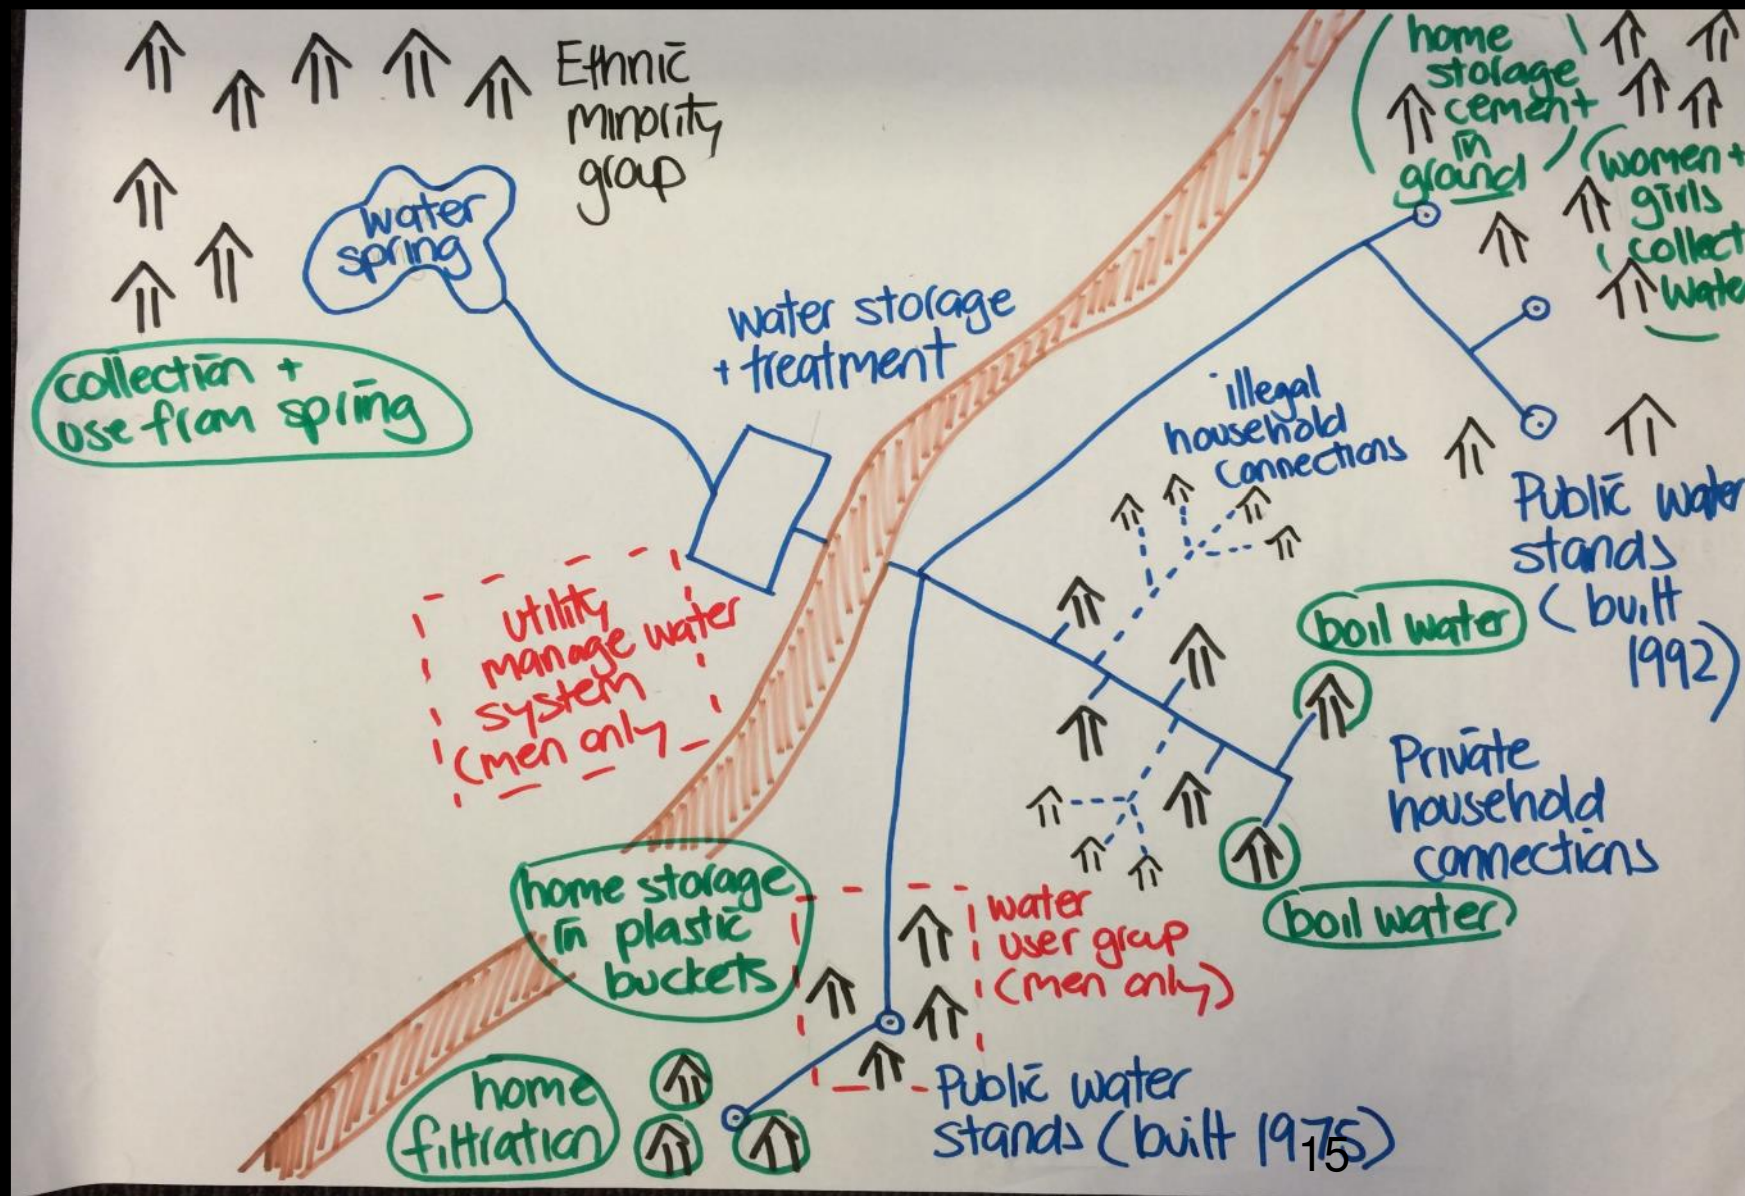 Ethnic
minority
group
water
spring
collection +
use from spring
water storage
+ treatment
home
storage
cement
in
ground
women +
girls
collect
illegal
household
connections
Public water
stands
(built
1992)
utility
manage water
system
(men only
boil water
Private
household
connections
boil water
home storage
in plastic
buckets
water
user group
(men only)
home
filtration
Public water
stands (built 1975)
15